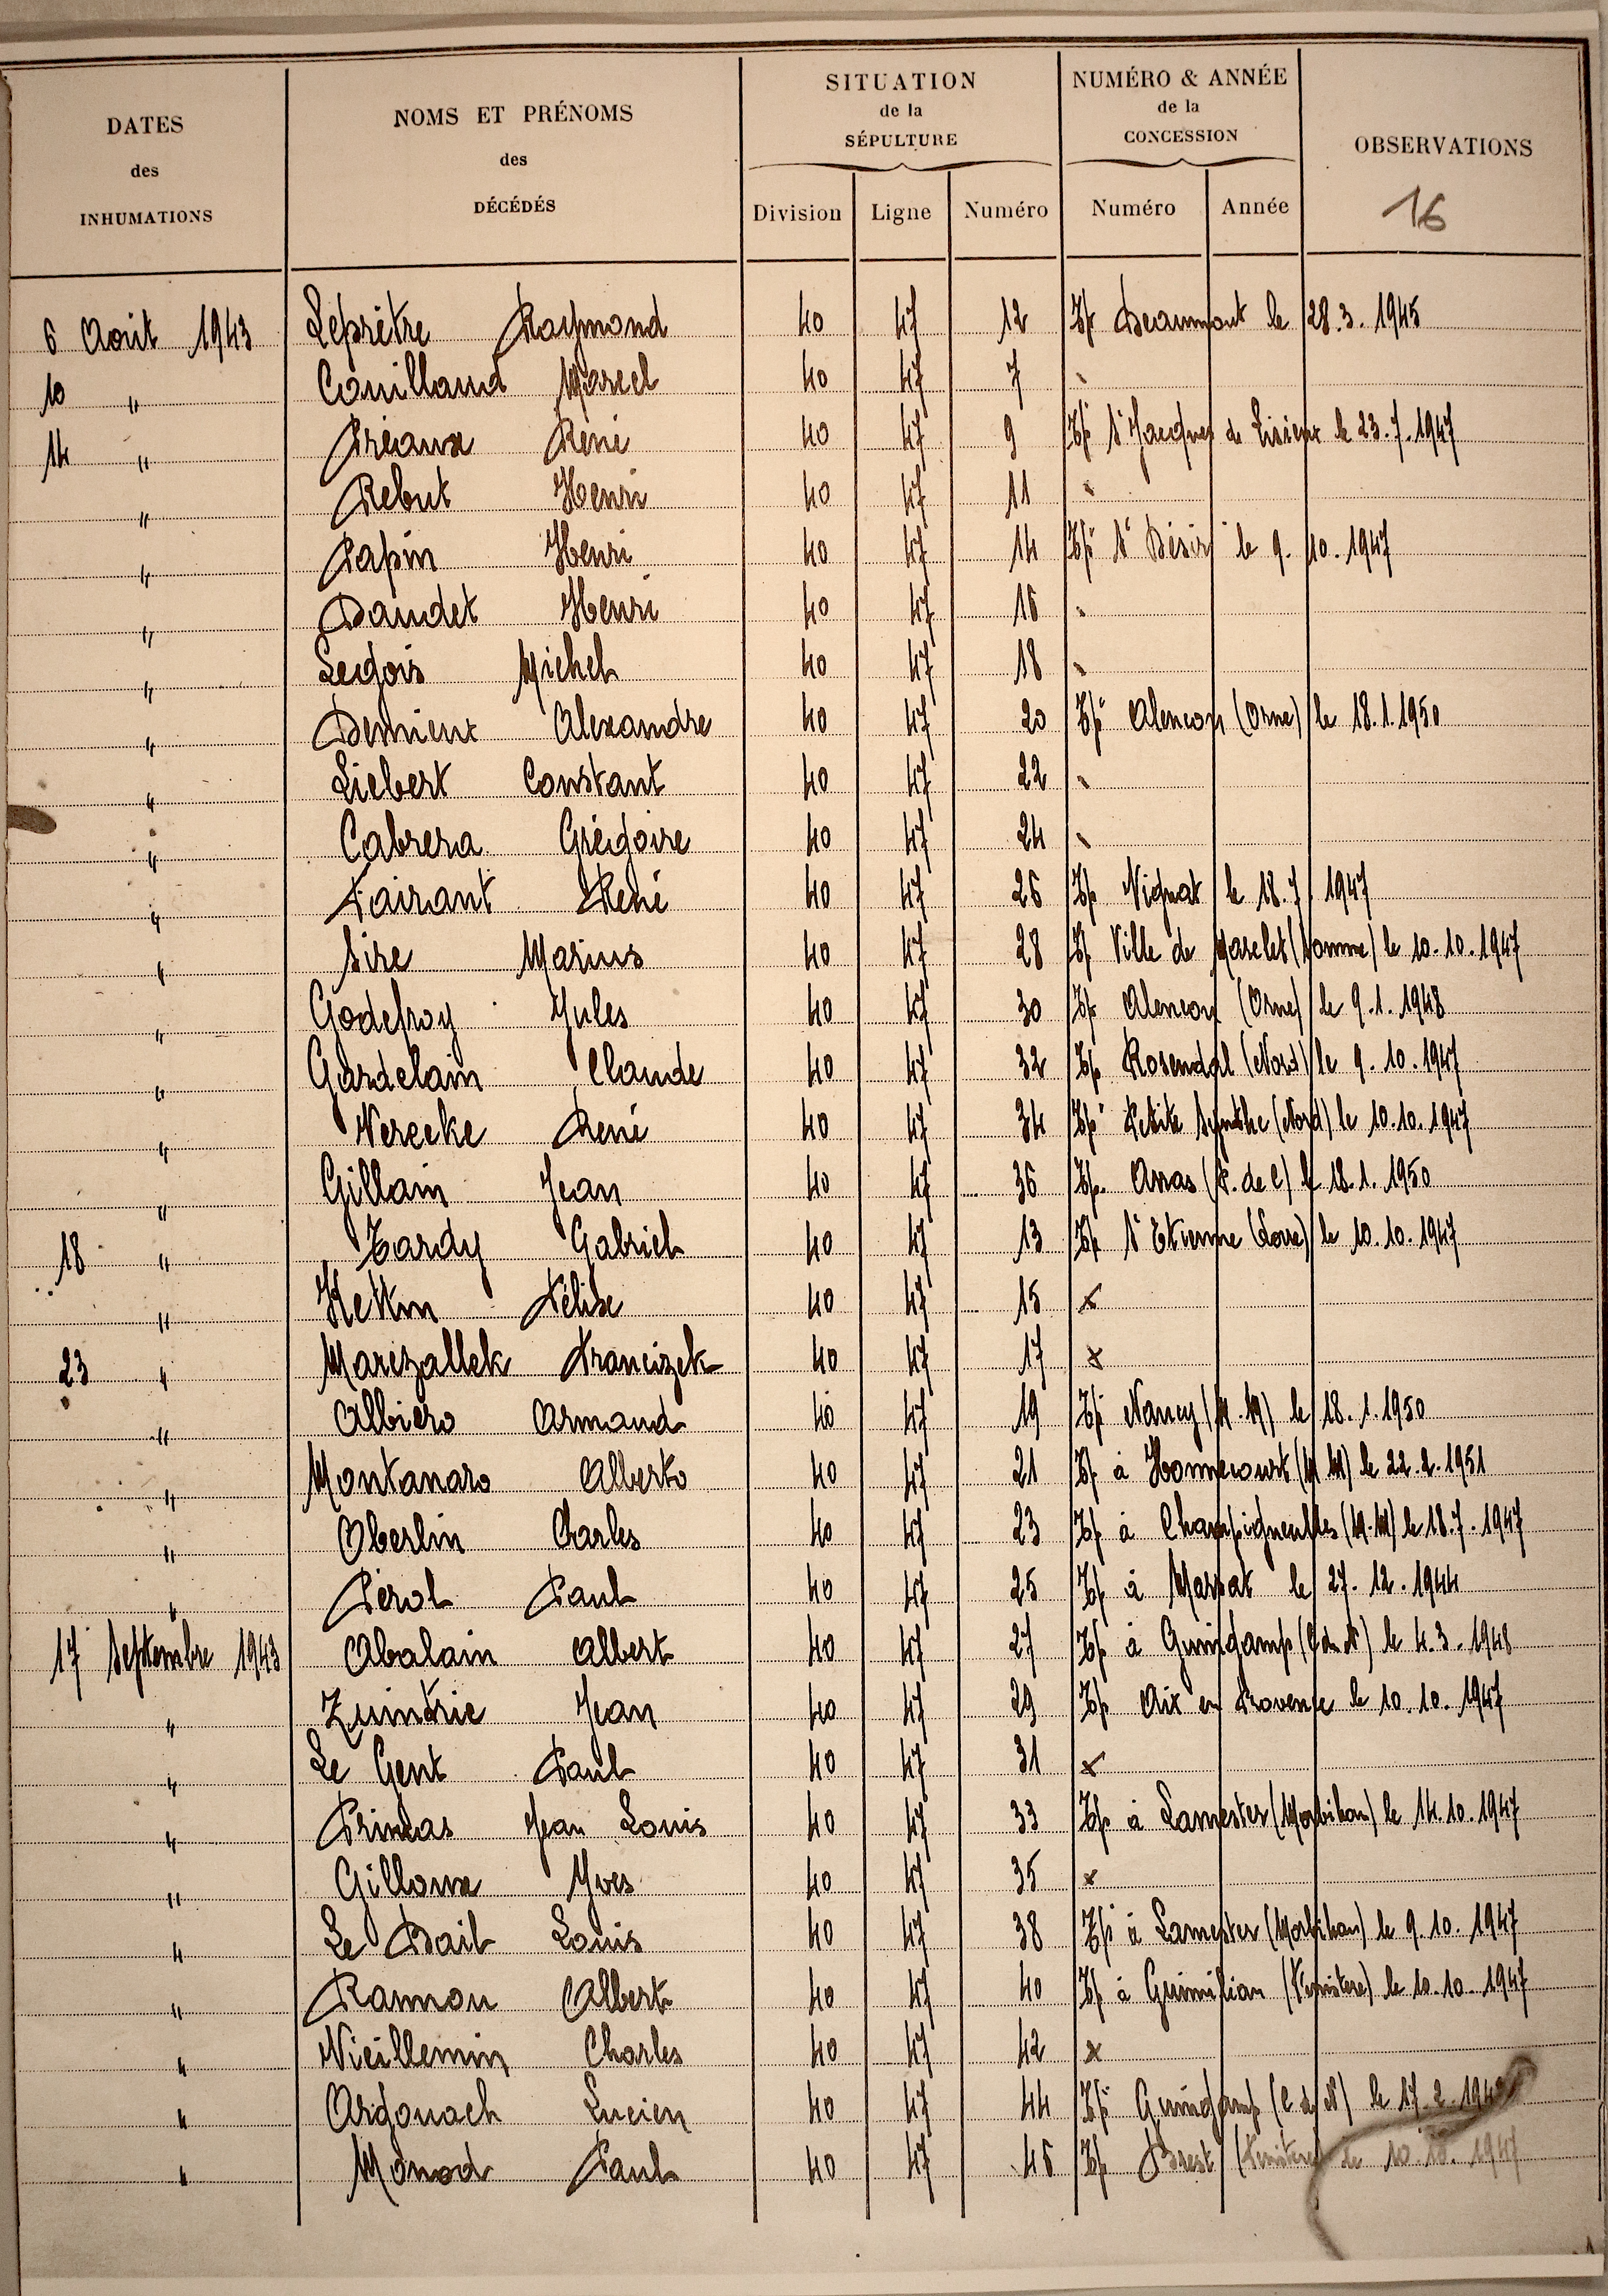 DATES des INHUMATIONS
NOMS ET PRÉNOMS des DÉCÉDÉS
SITUATION de la SÉPULTURE
NUMÉRO & ANNÉE de la CONCESSION
OBSERVATIONS
Division Ligne Numéro Numéro Année 16
6 Août 1943 Leprêtre Raymond 40 47 12 Tp Beaumont le 28.3.1945
10 " Couillaud Marcel 40 47 7
14 " Préaux René 40 47 9 Tp St Jacques de Lisieux le 23.7.1947
" Rebut Henri 40 47 11
" Papin Henri 40 47 14 Tp St Désir le 9.10.1947
" Daudet Henri 40 47 16
" Legois Michel 40 47 18
" Demieux Alexandre 40 47 20 Tp Alencon (Orne) le 18.1.1950
" Liebert Constant 40 47 22
" Cabrera Grégoire 40 47 24
" Fairant René 40 47 26 Tp Vignat le 18.7.1947
" Sire Marius 40 47 28 Tp Ville de Marclet (Somme) le 10.10.1947
" Godefroy Jules 40 47 30 Tp Alencon (Orne) le 9.1.1948
" Gardelain Claude 40 47 32 Tp Rosendal (Nord) le 9.10.1947
" Vereeke René 40 47 34 Tp Petite Synthe (Nord) le 10.10.1947
" Gillain Jean 40 47 36 Tp. Arras (P. de C) le 18.1.1950
18 " Tardy Gabriel 40 47 13 Tp St Etienne (Loire) le 10.10.1947
" Félix 40 47 15 x
23 " Marczallek Francizek 40 47 17 x
" Albiero Armand 40 47 19 Tp Nancy (M.M) le 18.1.1950
" Montanaro Alberto 40 47 21 Tp à Homécourt (M.M) le 22.2.1951
" Oberlin Charles 40 47 23 Tp à Champigneulles (M.M) le 18.7.1947
" Pérol Paul 40 47 25 Tp à Massat le 27.12.1944
17 Septembre 1943 Abalain Albert 40 47 27 Tp à Guingamp (C du N) le 4.3.1948
" Zuintrie Jean 40 47 29 Tp Aix en Provence le 10.10.1947
" Le Gent Paul 40 47 31 x
" Princas Jean Louis 40 47 33 Tp à Lanester (Morbihan) le 14.10.1947
" Gilloux Yves 40 47 35 x
" Le Bail Louis 40 47 38 Tp à Lanester (Morbihan) le 9.10.1947
" Rannou Albert 40 47 40 Tp à Guimilian (Finistere) le 10.10.1947
" Vieillemin Charles 40 47 42 x
" Argouach Lucien 40 47 44 Tp Guingamp (C du N) le 17.2.
" Monod Paul 40 47 46 Tp Brest (Finistere) le 10.10.1947